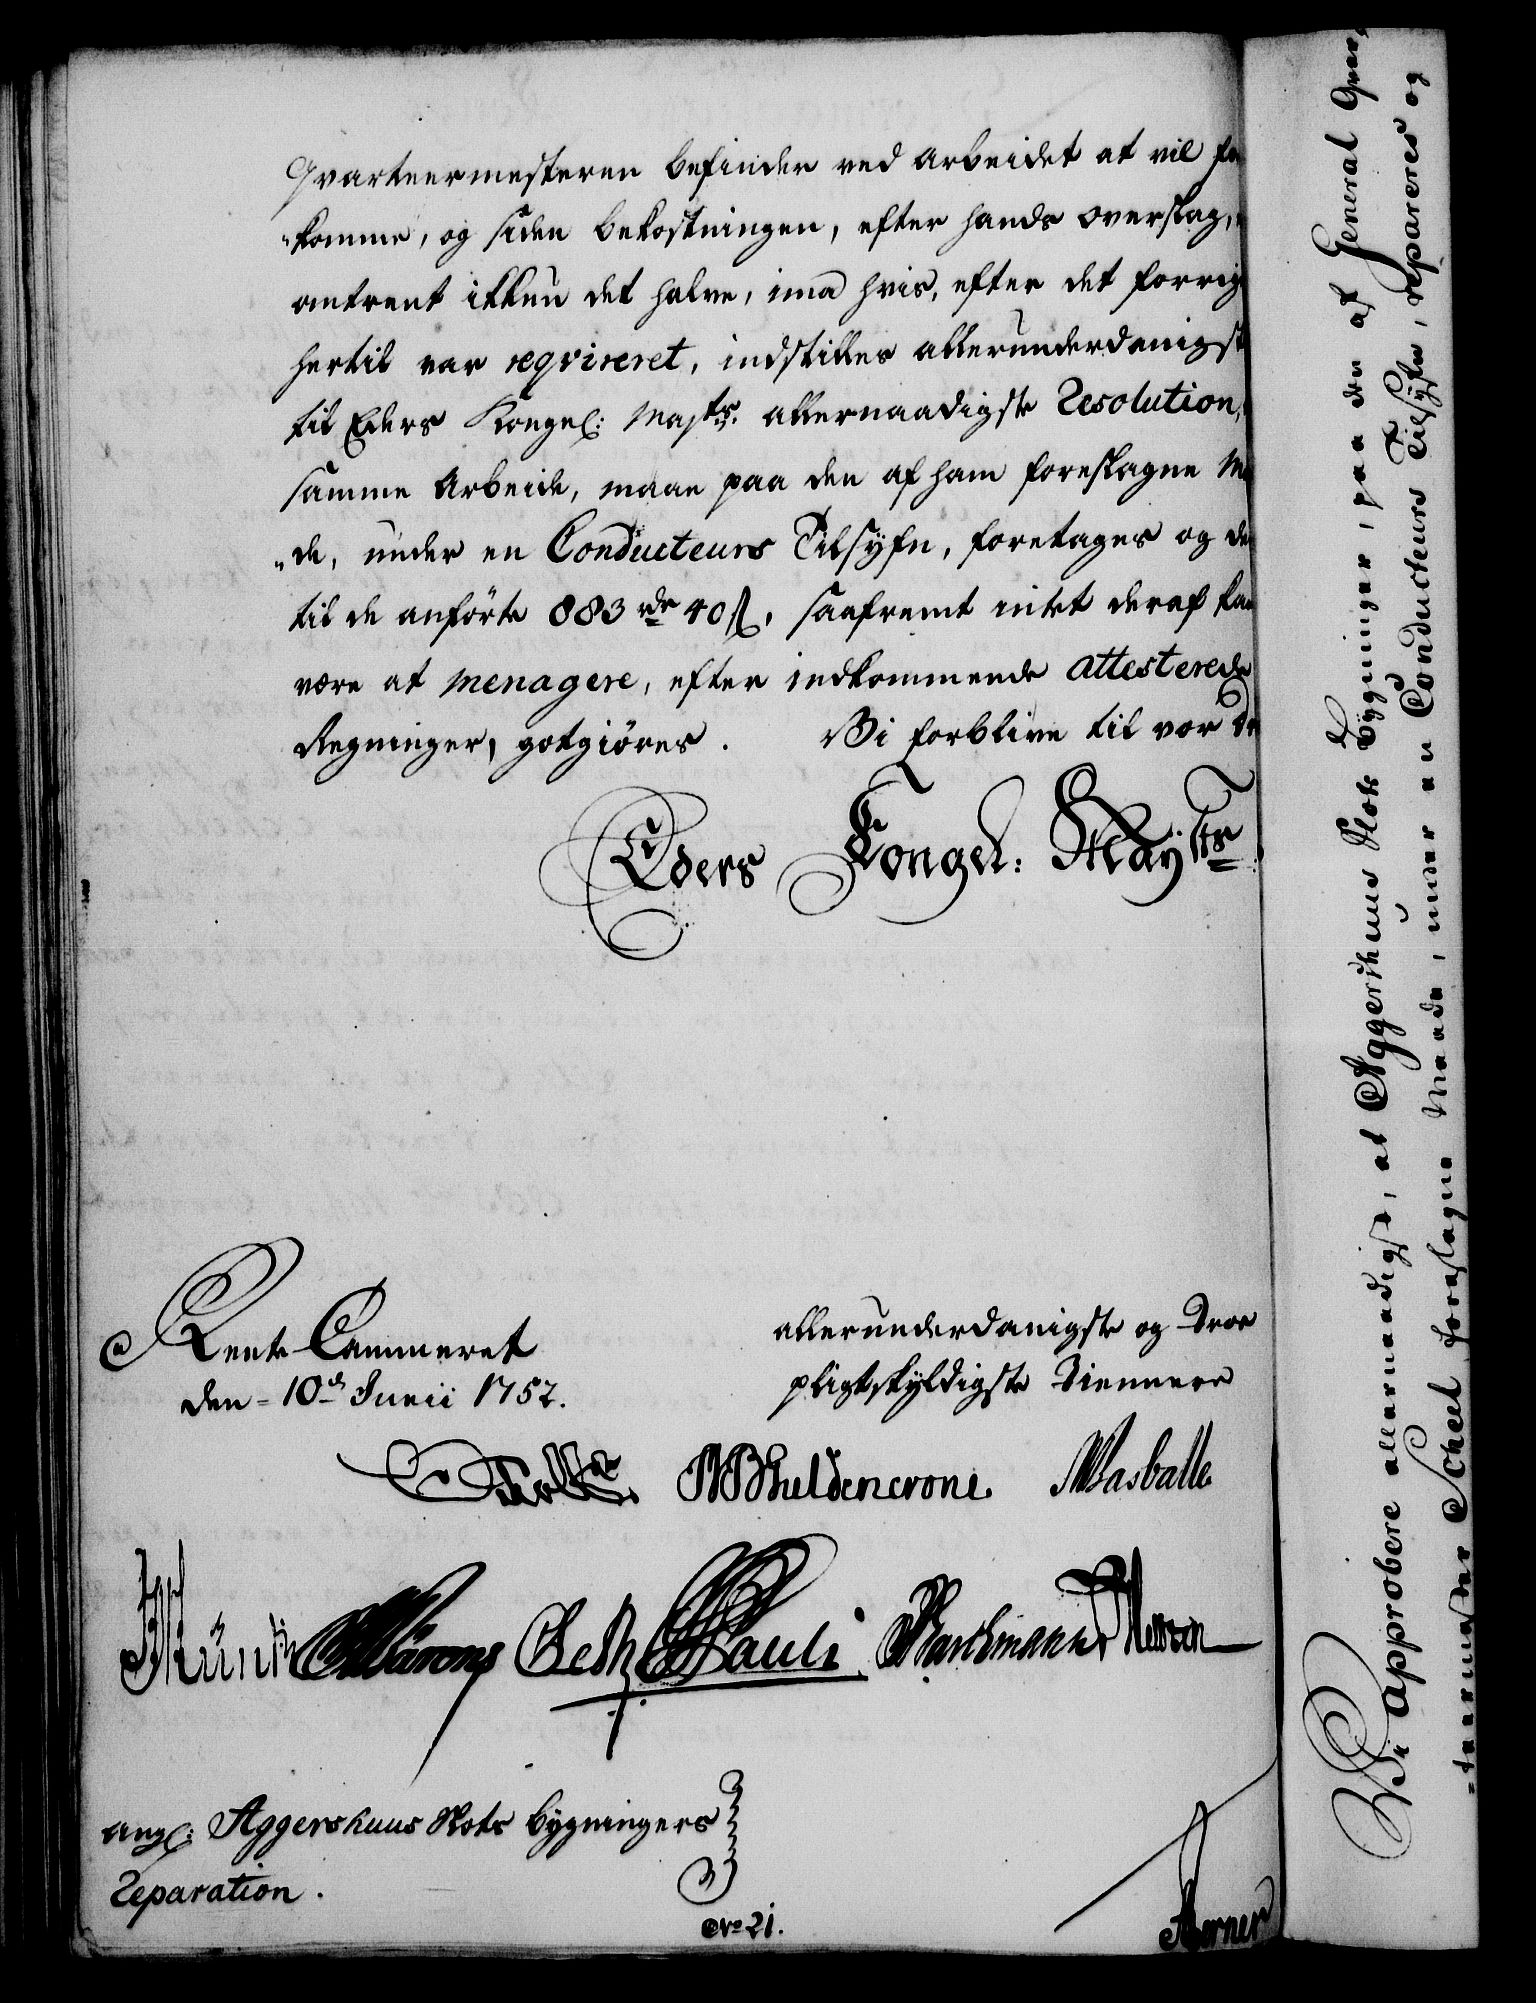 Qvarteermesteren befinder ved Arbeidet at vil
"komme, og siden bekostningen, efter hands overslag,
omtrent ikkun det halve, imod hvis, efter det forrig
hertil var reqvireret, indstilles allerunderdanigst
til Eders Kongel: Majts: allernaadigste Resolution,
samme Arbeide, maae paa den af ham foreslagne Ma
"de, under en Conducteurs Tilsyfn, foretages og de
til de anførte 883 rdr 40 ß, saafremt intet deraf kan
være at menagere, efter indkommende attesterede
Regninger, gotgiøres. Vi forblive til vor
Eders Kongel: Mayts
Rente Cammeret
den - 10de Junii 1752.
allerunderdanigste og Troe
pligtskyldigste Tiennere
Guldencrone
Pauli
Angl: Aggershuus Slots bygningers
Reparation.
No 21.
Vi Approbere allernaadigst, at Aggershuus Slots Bygninger, paa den af General Qvar
=teermester Scheel foreslagne Maade, under en Conducteurs Tilsyfn, repareres og